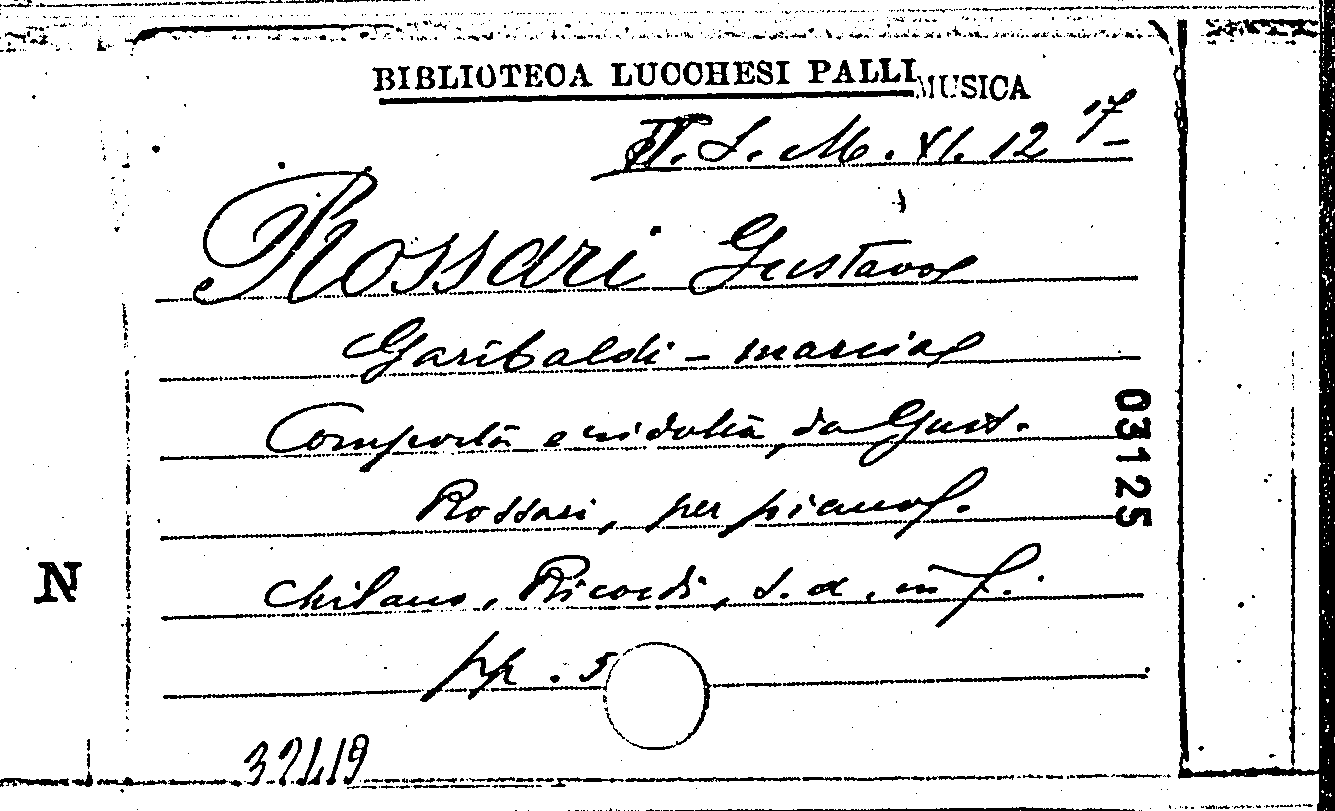 BIBLIOTECA LUCCHESI PALLI MUSICA
S. M. XI. 12 17
Rossari Gustavo
Garibaldi - marcia
Composta e ridotta da Gust.
Rossari, per pianof.
Milano, Ricordi, s. a. in f.
pp. 5
03125
N
32419